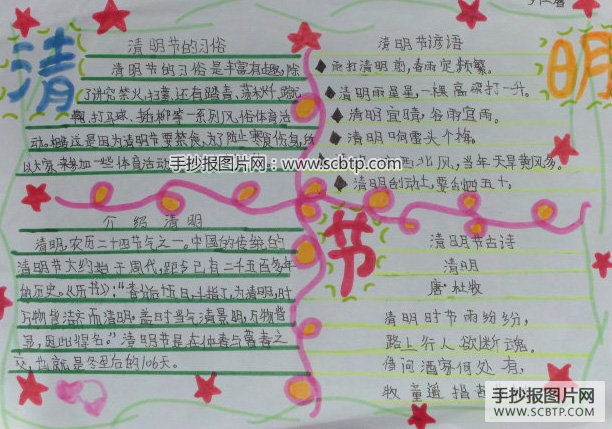 清
明
节
清明节的习俗
清明节的习俗是丰富有趣,除
了讲究禁火、扫墓,还有踏青、荡秋千、蹴
鞠、打马球、插柳等一系列风俗体育活
动。相传这是因为清明节要禁食,为了防止寒食伤身,所
以大家来参加一些体育活动
清明节谚语
雨打清明前,春雨定频繁。
清明雨星星,一棵高粱打一升。
清明宜晴,谷雨宜雨。
清明响雷头个梅。
西北风,当年天旱黄风多。
清明刮动土,要刮四五十。
手抄报图片网:www.scbtp.com
介绍清明
清明,农历二十四节气之一。中国的传统的
清明节大约始于周代,距今已有二千五百多年
的历史。《历书》:"春分后十五日,斗指丁,为清明,时
万物皆洁齐而清明,盖时当气清景明,万物皆
显,因此得名。"清明节是在仲春与暮春之
交,也就是冬至后的106天。
清明节古诗
清明
唐·杜牧
清明时节雨纷纷,
路上行人欲断魂。
借问酒家何处有,
牧童遥指
手抄报图片网
WWW.SCBTP.COM